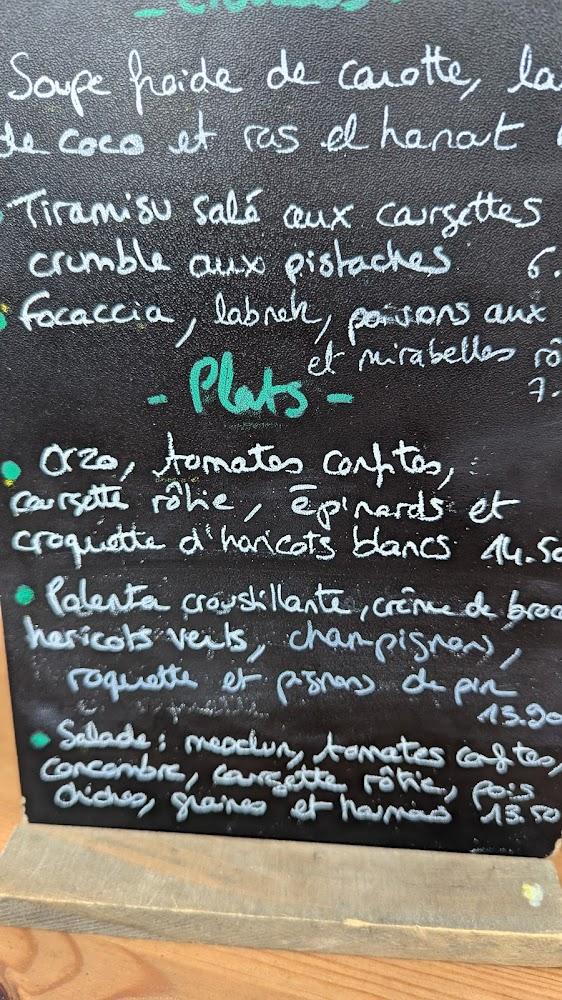 Soupe froide de carotte, la
de coco et ras el hanout
Tiramisu salé aux courgettes
crumble aux pistaches 6.
Focaccia, labneh, poivrons aux
et mirabelles rô
7.
- Plats -
Orzo, tomates confites,
courgette rôtie, épinards et
croquette d'haricots blancs 14.50
Polenta croustillante, crème de broc
haricots verts, champignons,
roquette et pignons de pin
13.90
Salade : mesclun, tomates confites,
concombre, courgette rôtie, pois
chiches, graines et houmous 13.50